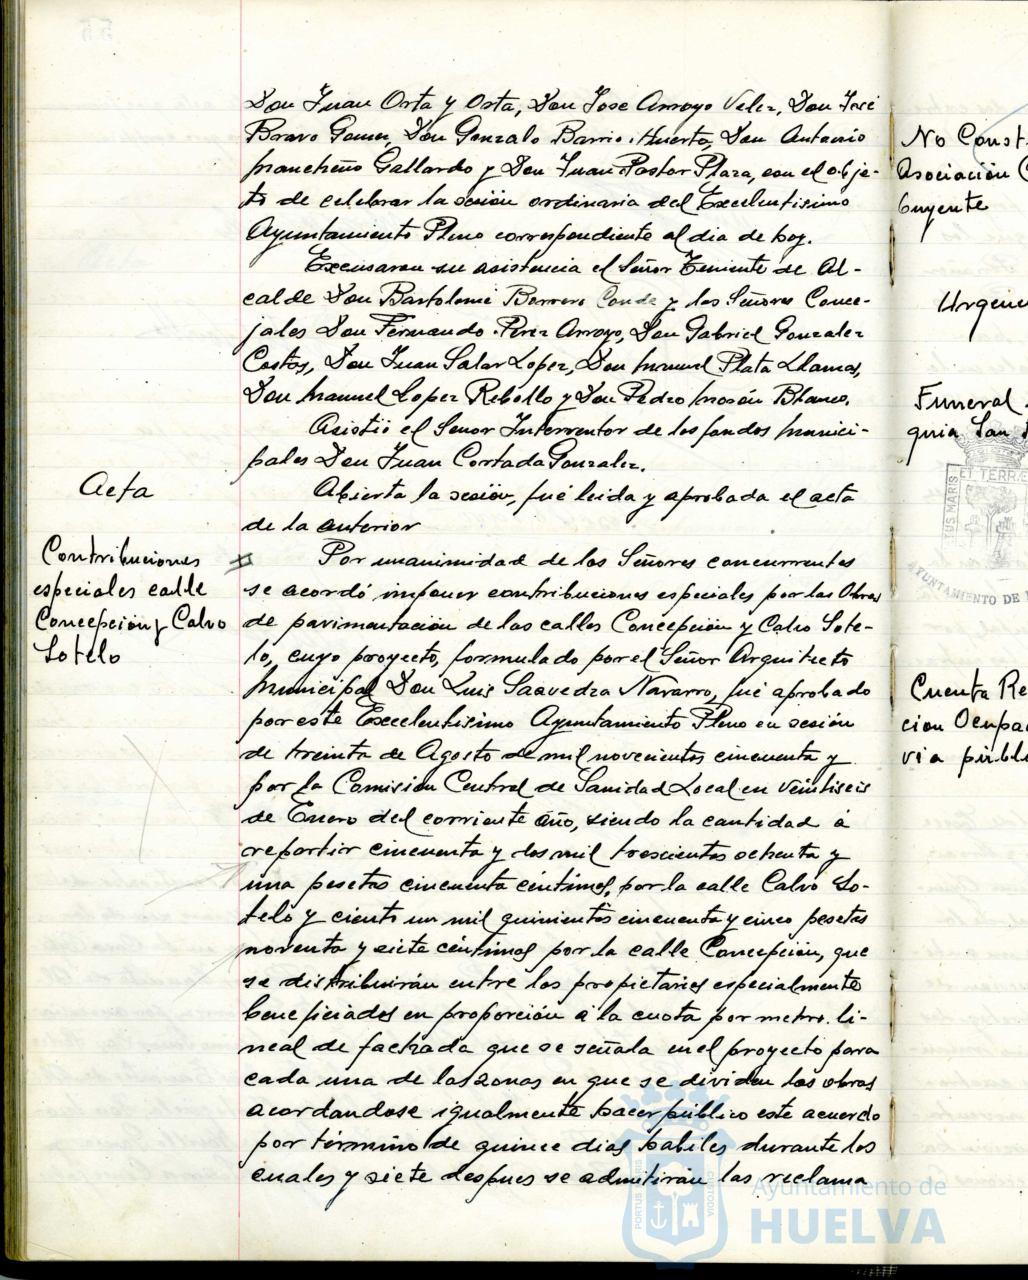 Don Juan Orta y Orta, Don Jose Arroyo Velez, Don José
Bravo Gomez, Don Gonzalo Barrio Huerta, Don Antonio
Mancheño Gallardo y Don Juan Pastor Plaza, con el obje-
to de celebrar la sesión ordinaria del Excelentisimo
Ayuntamiento Pleno correspondiente al dia de hoy.
Excusaron su asistencia el Señor Teniente de Al-
calde Don Bartolomé Borrero Conde y los Señores Conce-
jales Don Fernando Perez Arroyo, Don Gabriel Gonzalez
Costas, Don Juan Salas Lopez, Don Manuel Plata Llamas,
Don Manuel Lopez Rebollo y Don Pedro Morón Blanco.
Asistió el Señor Interventor de los fondos Munici-
pales Don Juan Cortada Gonzalez.
Acta
Abierta la sesión, fué leida y aprobada el acta
de la anterior
Contribuciones
especiales calle
Concepción y Calvo
Sotelo
Por unanimidad de los Señores concurrentes
se acordó imponer contribuciones especiales por las Obras
de pavimentación de las calles Concepción y Calvo Sote-
lo, cuyo proyecto, formulado por el Señor Arquitecto
Municipal Don Luis Saavedra Navarro, fué aprobado
por este Excelentisimo Ayuntamiento Pleno en sesión
de treinta de Agosto de mil novecientos cincuenta y
por la Comisión Central de Sanidad Local en veintiseis
de Enero del corriente año, siendo la cantidad a
repartir cincuenta y dos mil trescientas ochenta y
una pesetas cincuenta céntimos, por la calle Calvo So-
telo y ciento un mil quinientas cincuenta y cinco pesetas
noventa y siete céntimos por la calle Concepción, que
se distribuirán entre los propietarios especialmente
beneficiados en proporción a la cuota por metro li-
neal de fachada que se señala en el proyecto para
cada una de las zonas en que se dividen las obras
acordandose igualmente hacer público este acuerdo
por término de quince dias habiles durante los
cuales y siete despues se admitiran las reclama
No Const
Asociación C
buyente
Urgenc
Funeral
quia San
ET TERRAE
AYUNTAMIENTO DE
Cuenta Re
cion Ocupac
via públi
PORTUS MARIS
CUSTODIA
Ayuntamiento de
HUELVA